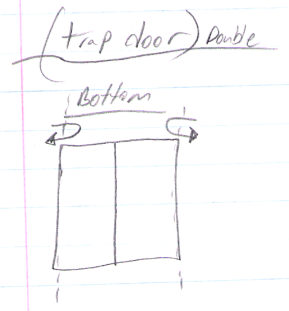 (trap door) Double
Bottom